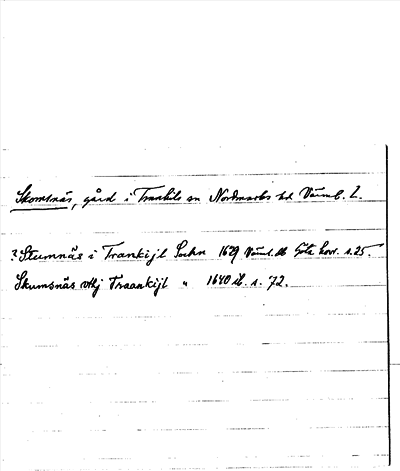 Skomsnäs, gård i Trankils sn Nordmarks hd Värml. L.
? Stumnäs i Trankijl Sockn 1629 Värml. db Göta hovr. s. 25.
Skumsnäs vthj Traankijl " 1640 ib. s. 72.